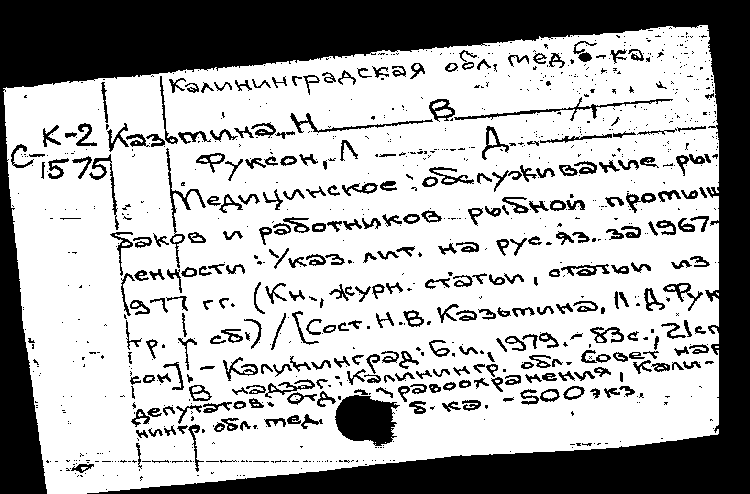 Калининградская обл. мед. б-ка.
К-2 Казьмина, Н В
С 1575
Фуксон, Л Д
Медицинское обслуживание ры-
баков и работников рыбной промыш
ленности : Указ. лит. на рус. яз. за 1967-
1977 гг. (Кн., журн. статьи, статьи из
тр. и сб.) / [Сост. Н.В. Казьмина, Л.Д. Фук
сон]. - Калининград : Б.и., 1979. - 83с.; 21см
В надзаг.: Калинингр. обл. Совет нар
депутатов. Отд. здравоохранения, Кали-
нингр. обл. мед. б-ка. - 500 экз.